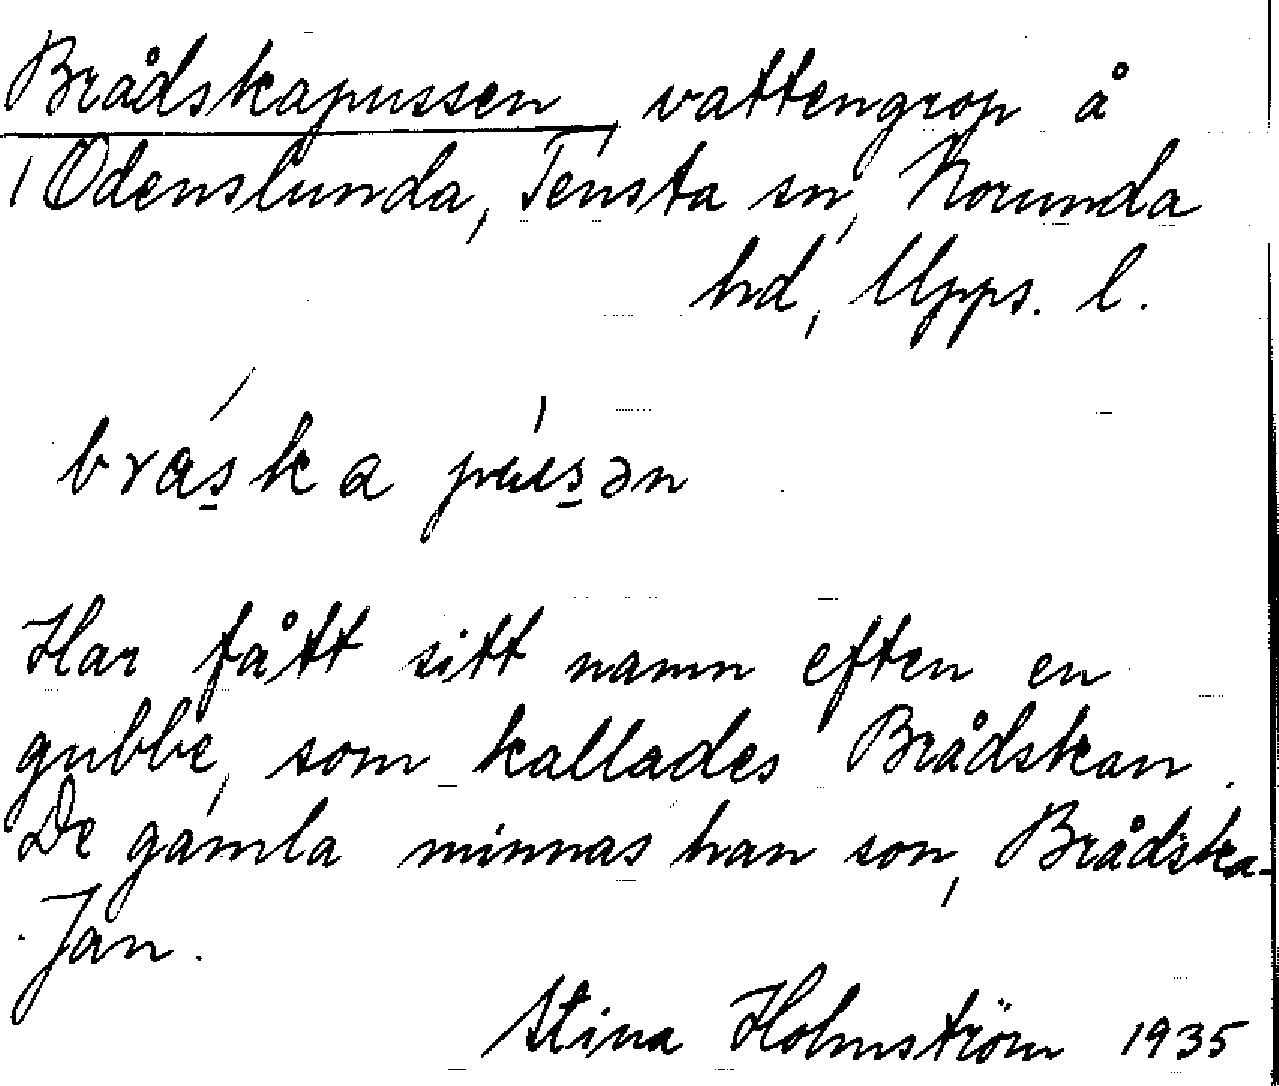 Brådskapussen, vattengrop å
Odenslunda, Tensta sn, Norunda
hd, Upps. l.
Har fått sitt namn efter en
gubbe, som kallades Brådskan.
De gamla minnas han son, Brådska-
Jan.
Stina Holmström 1935